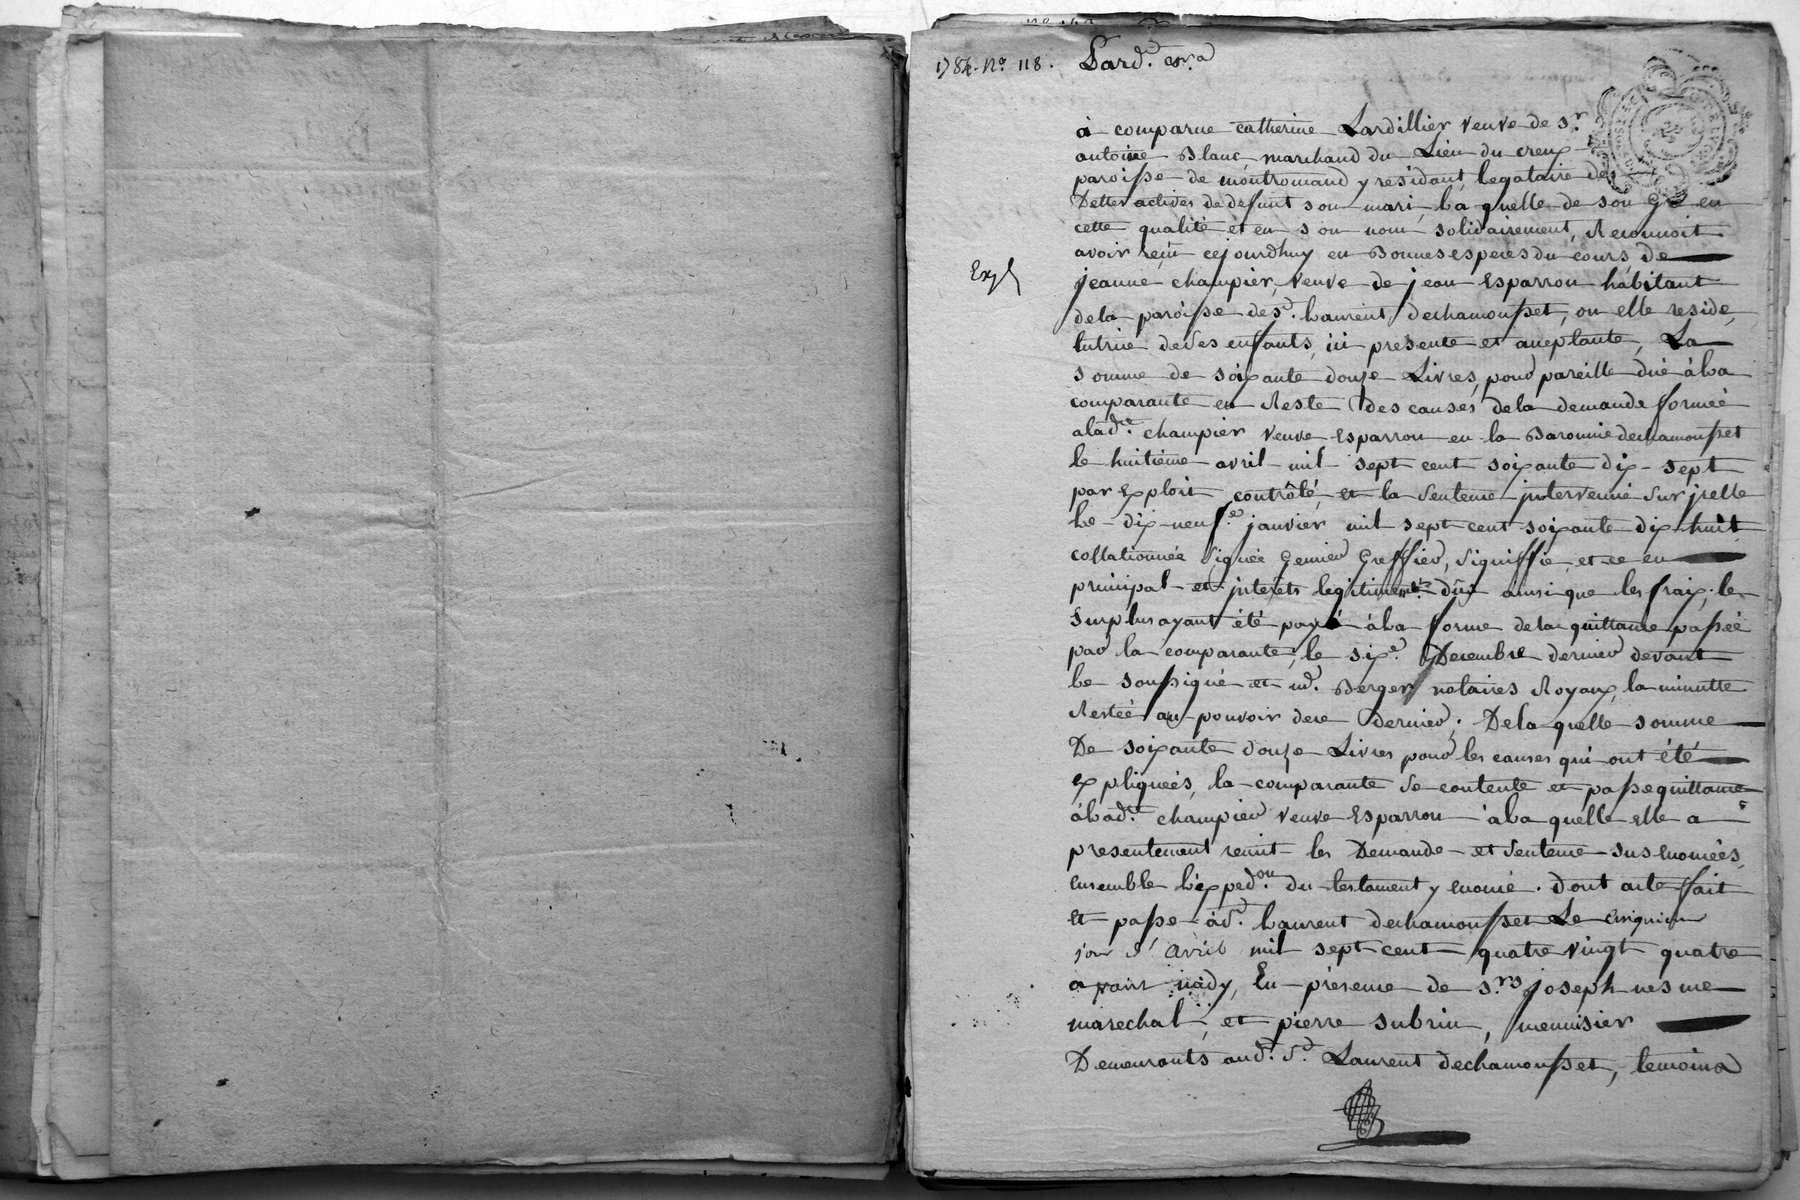 1784. No. 118.
Pard. 
à comparue catherine Lardillier veuve de sr.
antoine Blanc marchand du Lieu du creux
paroisse de montromand y residant, legataire des
Dettes actives de defunt son mari, La quelle de son gré en
cette qualité et en son nom solidairement, Reconnoit
avoir reçu cejourdhuy en Bonnes especes du cours, de
Expé
jeanne champier, veuve de jean Esparron habitant
dela paroisse de st. Laurent dechamousset, ou elle reside,
tutrice deses enfants, ici presente et acceptante, La
somme de soixante douze Livres, pour pareille due àla
comparante en Reste des causes dela demande formée
alade. champier veuve Esparron en la Baronnie dechamousset
le huitieme avril mil sept cent soixante dix-sept
par Exploit contrôlé, et la Sentence jntervenuë sur jcelle
Le dix-neufe. janvier mil sept cent soixante dix huit
collationnée signée Greffier, signiffie, et ce en
principal et jnterêts legitimemt. dûs ainsi que les fraix, le
surplus ayant été payé àla forme dela quittance passée
par la comparante, le sixe. Decembre dernier devant
Le soussigné et me. Berger notaires Royaux, la minutte
Restée au pouvoir dece dernier; Dela quelle somme
De soixante douze Livres pour les causes qui ont été
expliquées, la comparante se contente et passe quittance
àlade. champier veuve Esparron àla quelle elle a
presentement remit les Demande et Sentence sus enoncées,
ensemble L'expedon. du testament y enoncé. Dont acte fait
et passé àst. Laurent dechamousset Le cinquieme
jour d'avril mil sept cent quatre vingt quatre
avant midy, En présence de srs. joseph nesme
marechal, et pierre subrin, menuisier
Demeurants aud. st. Laurent dechamousset, temoins